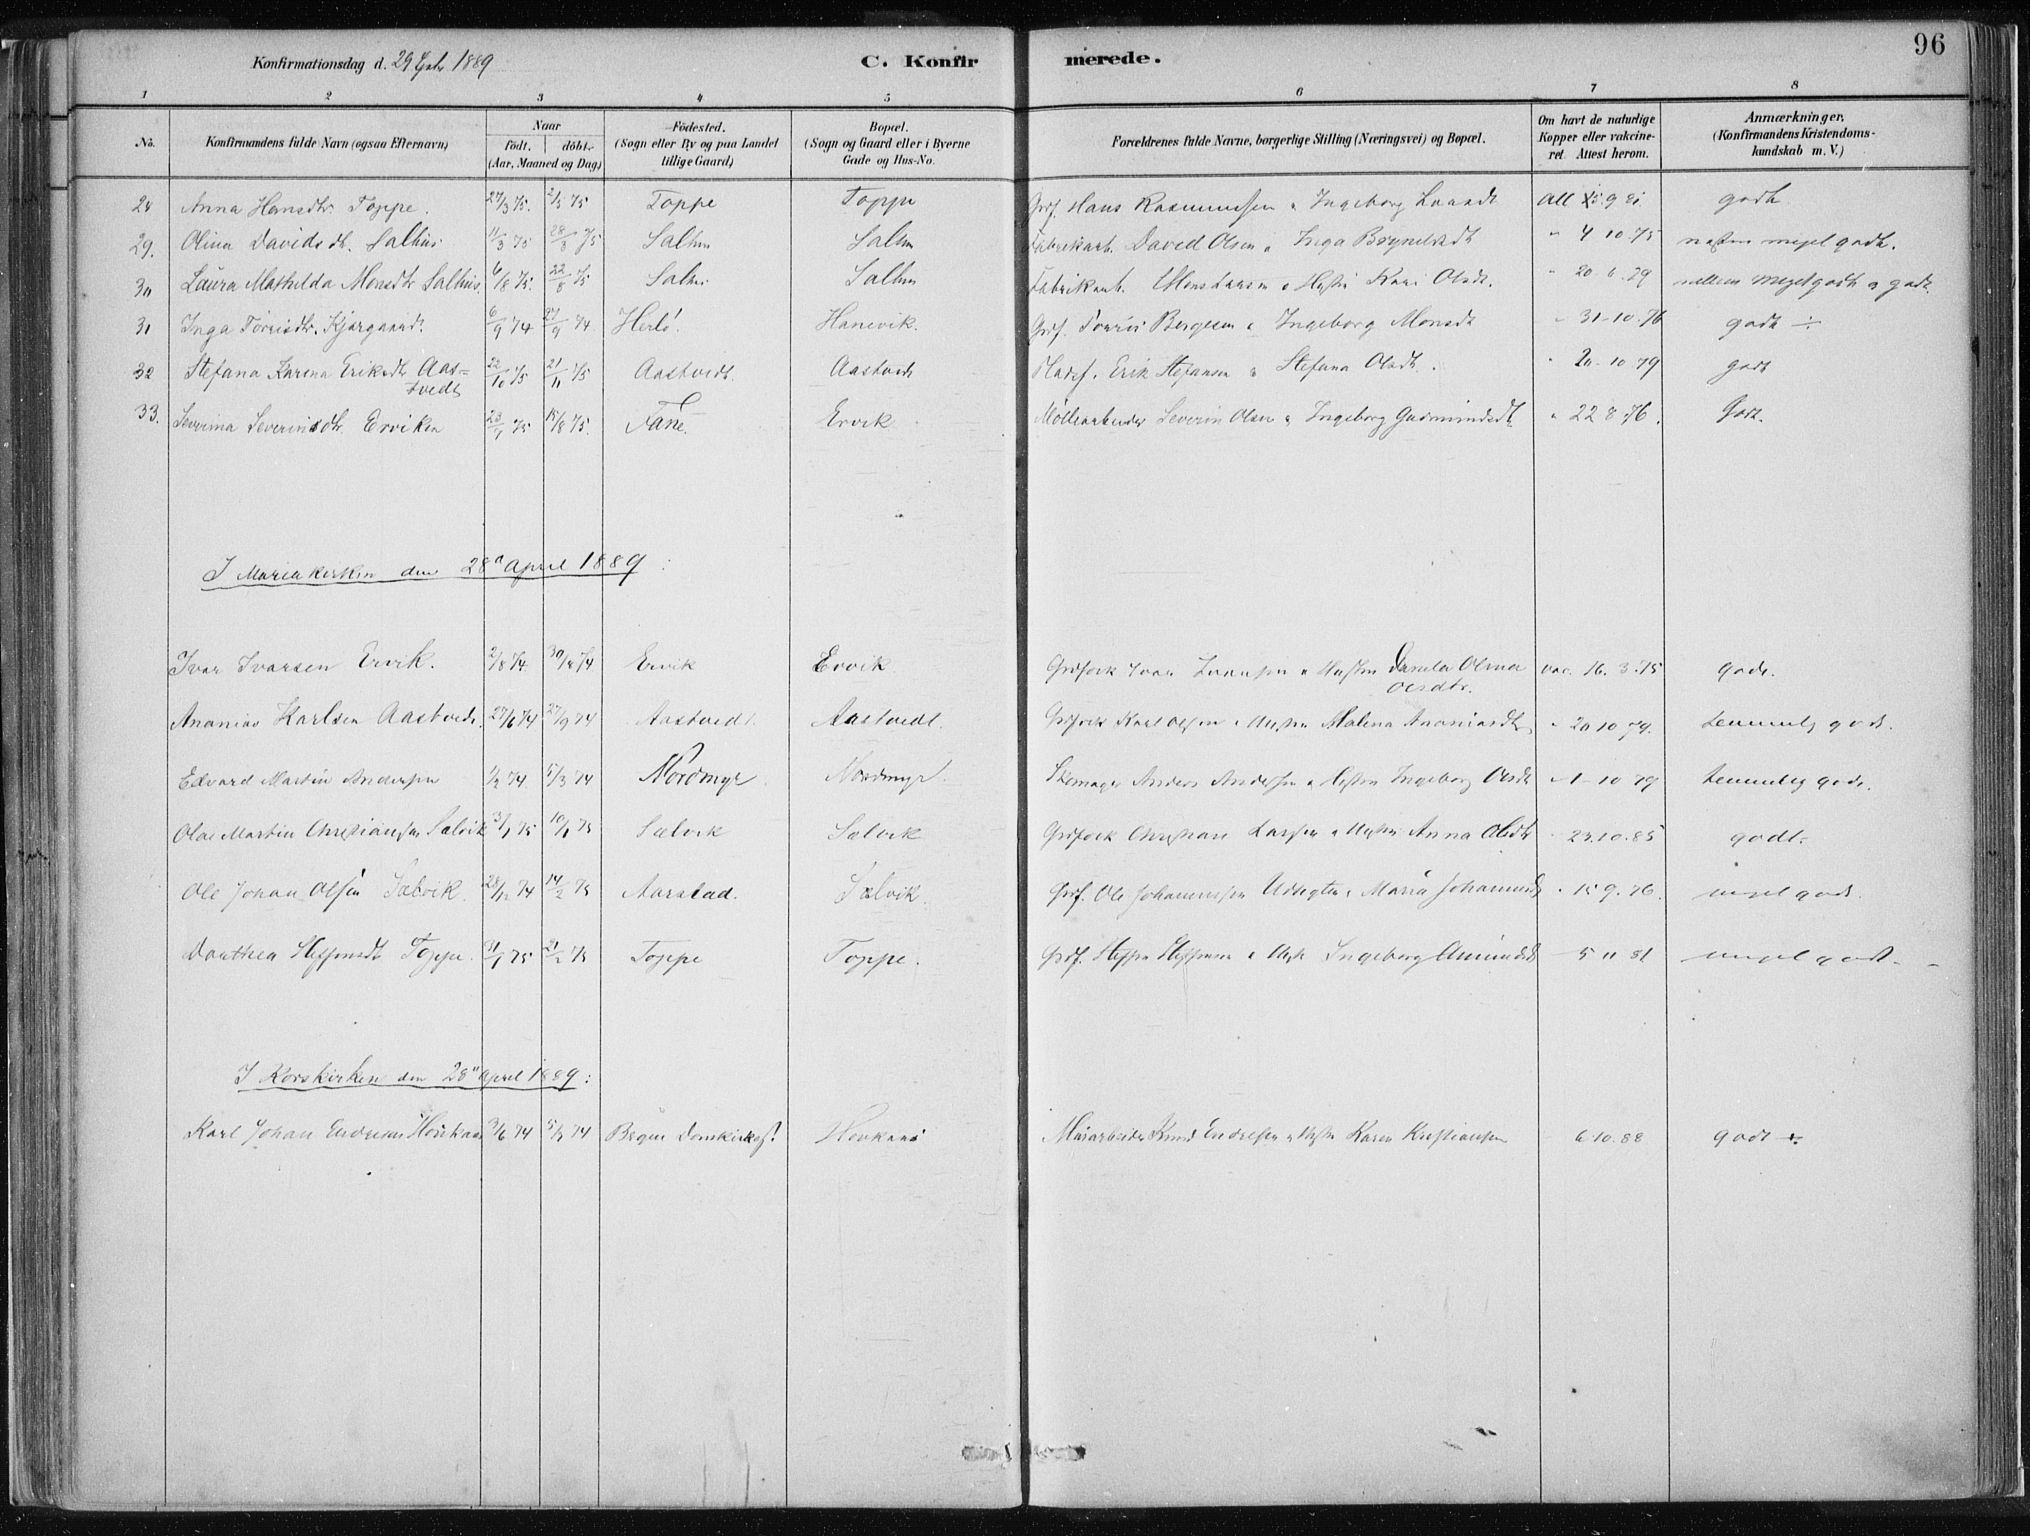 96
Konfirmationsdag d. 29 1889 C. Konfirmerede.
1 2 3 4 5 6 7 8
No. Konfirmandens fulde Navn (ogsaa Efternavn) Naar født. døbt. (Aar, Maaned og Dag) Fødested. (Sogn eller By og paa Landet tillige Gaard) Bopæl. (Sogn og Gaard eller i Byerne Gade og Hus-No. Forældrenes fulde Navne, borgerlige Stilling (Næringsvei) og Bopæl. Om havt de naturlige Kopper eller vakcineret. Attest herom. Anmærkninger. (Konfirmandens Kristendomskundskab m. V.)
28 Anna Hansdtr Toppe. 27/3 75. 2/5 75 Toppe Toppe Grf. Hans Rasmussen Ingeborg godt
29. Olina Davidsdt. Salhus 11/3 75 28/3 75 Salhus Salhus Fabrikarb. David Olsen Inga Brynelsdt " 4 10 75 næsten meget godt.
30 Laura Mathilda Monsdtr Salhus. 6/8 75. 22/8 75 Salhus Salhus Fabrikarb. Mons Larsen Hustru Kari Olsdt. " 20 6. 79 mellem meget godt og godt.
31 Inga Torrisdtr. 6/9 74 27/9 74 Herlø. Hanevik. Grf. Torris Bergesen Ingeborg Monsdt " 31-10.76 godt ÷
32 Stefana Karena Eriksdtr Aastvedt 22/10 75 21/11 75 Aastvedt. Aastvedt Pladsf. Erik Stefansen Stefana Olsdt. " 20-10 79 godt
33. Severina Severinsdtr. Erviken 15/8 75. Fane Ervik Møllearbeider Severin Olsen Ingeborg Gudmundsdt " 22 8 76. Godt.
I Mariakirken den 28d April 1889:
Ivar Ivarsen Ervik. 2/8 74. 30/8 74 Ervik Ervik Grdfork Ivar Ivarsen Hustru Daniela Olina Olsdtr. vac. 16. 3. 75 godt.
Ananias Karlsen Aastvedt. 27/6 74 27/9 74 Aastvedt. Aastvedt. Grdfork Karl Olsen Hustru Malena Ananiasdtr " 20 10 79. temmelig godt.
Edvard Martin Andersen 1/2 74 5/3 74 Nordmyr. Nordmyr. Skomager Anders Andersen Hustru Ingeborg Olsdt 1-10 79 temmelig godt.
Olai Martin Christiansen Salvik 3/1 75 10/1 75 Salvik Salvik Grdfork Christian Larsen Hustru Anna Olsdtr 10. 85 godt.
Ole Johan Olsen Salvik. 28/12 74 14/2 75 Aarstad. Salvik. Grdf. Ole Johannessen Maria Johannesdt " 15 9. 76. meget godt.
Dorthea Steffensdt Toppe. 31/1 75 21/2 75 Toppe Toppe. Grdf. Steffen Steffensen Ingeborg Amundsdt 5 11 81 meget godt.
I Korskirken den 28d April 1889:
Karl Johan Endresen 3/6 74 5/7 74 Bergen Domkirkesg. Murarbeider Knud Endresen Hustru Karen Kristiansen 6.10.88 godt ÷